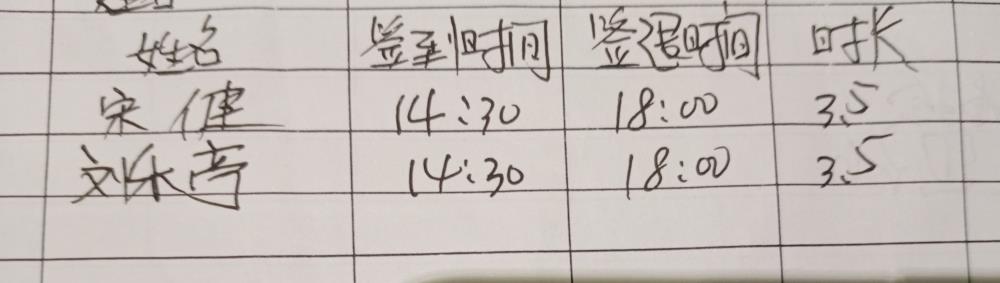 姓名 签到时间 签退时间 时长
宋健 14:30 18:00 3.5
刘乐亭 14:30 18:00 3.5